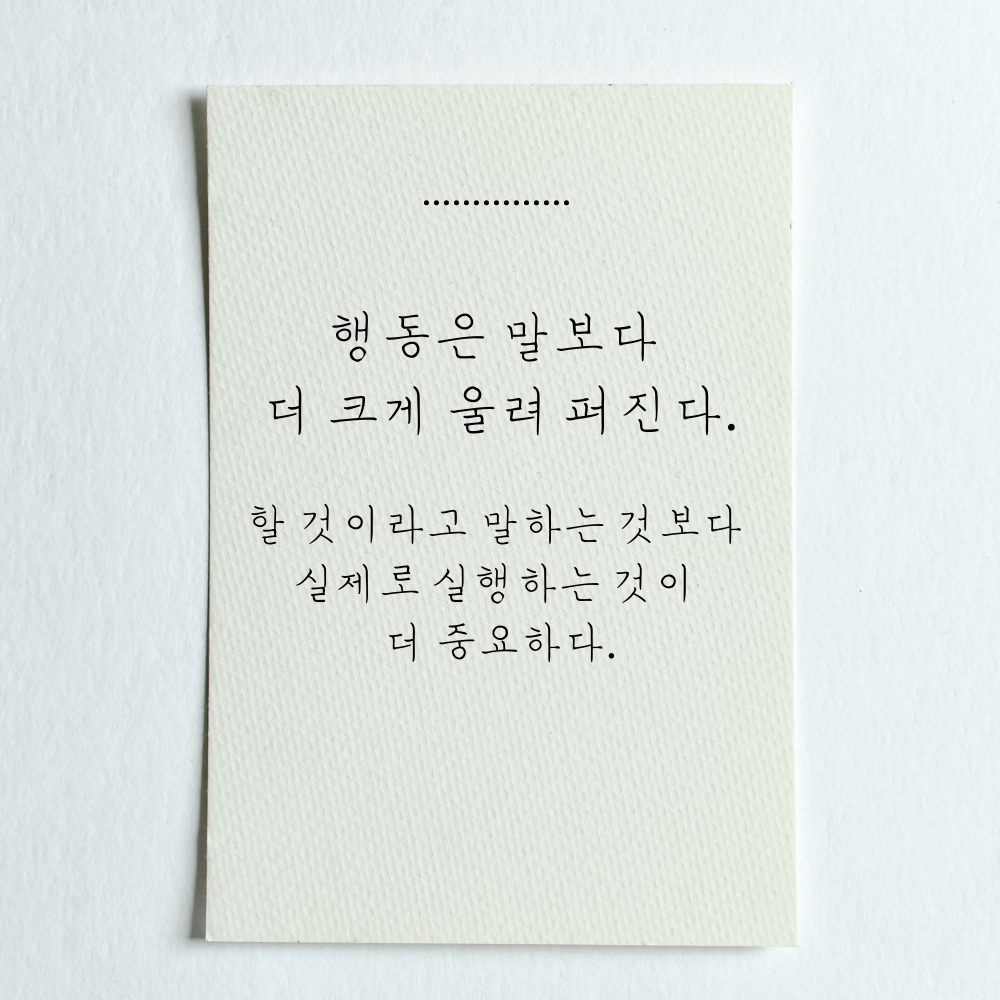 행동은 말보다
더 크게 울려 퍼진다.
할 것이라고 말하는 것보다
실제로 실행하는 것이
더 중요하다.